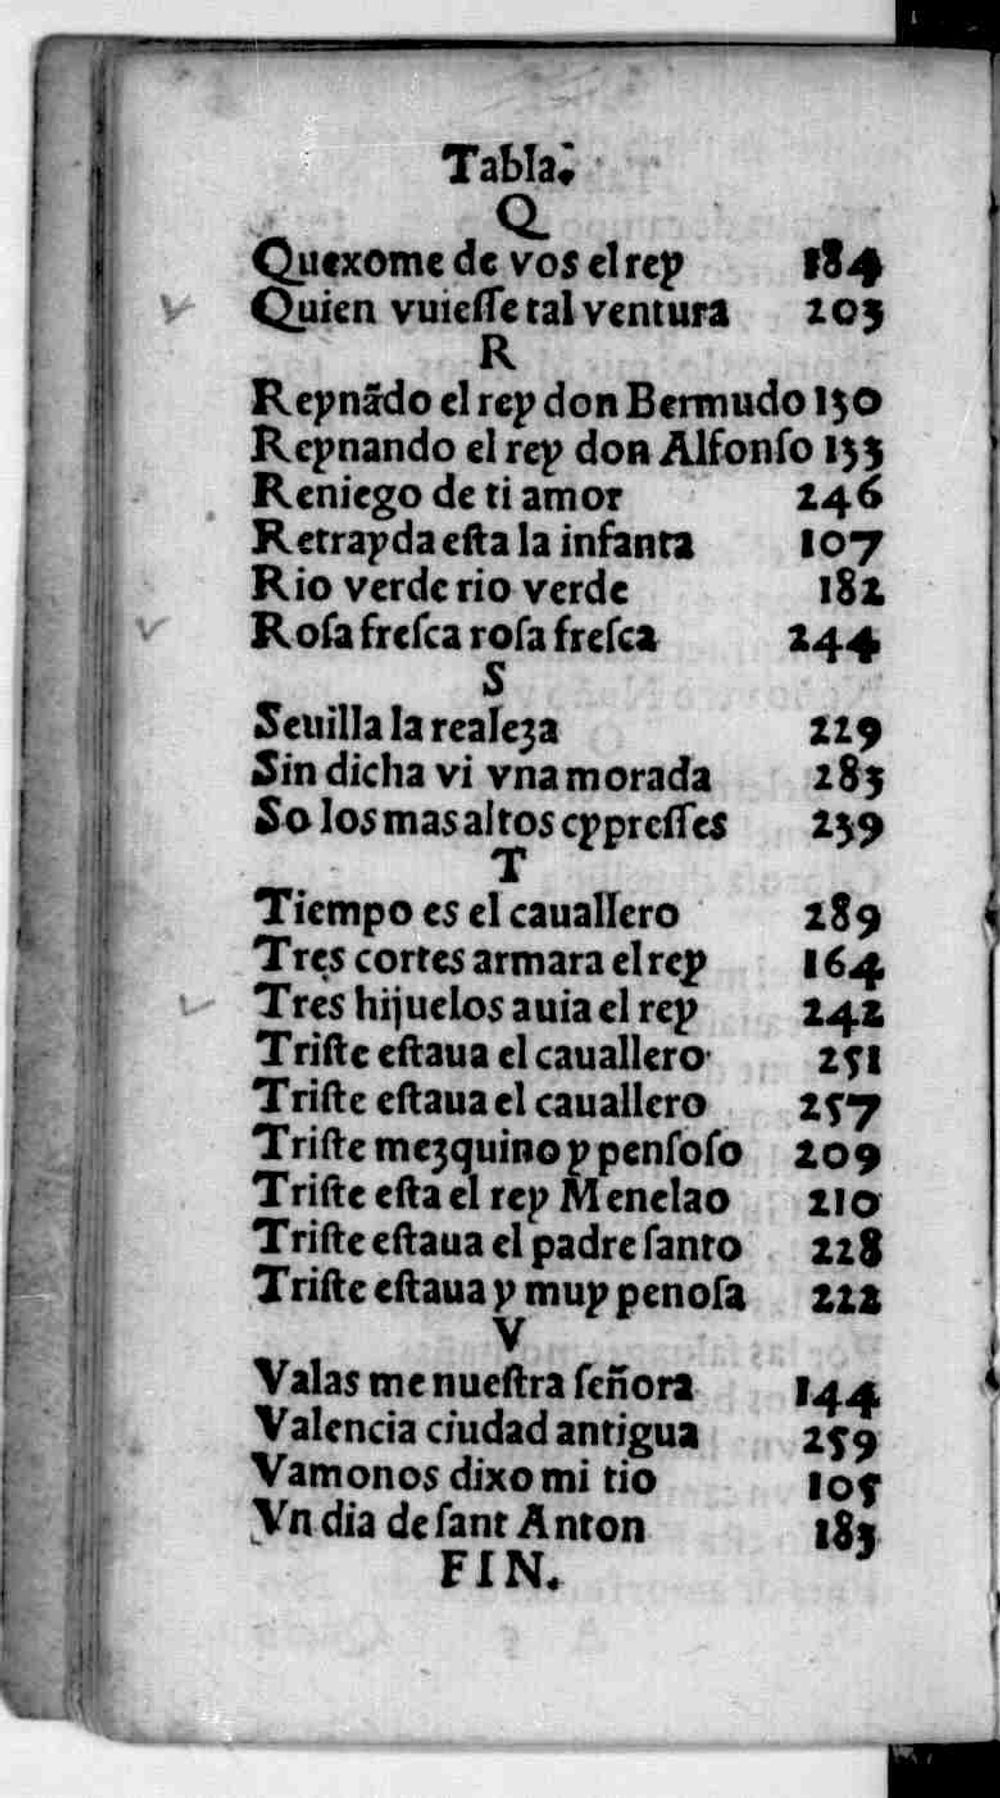 Tabla.
Q
Quexome de vos el rey 184
Quien vuiesse tal ventura 203
R
Reynādo el rey don Bermudo 130
Reynando el rey don Alfonso 133
Reniego de ti amor 246
Retrayda esta la infanta 107
Rio verde rio verde 182
Rosa fresca rosa fresca 244
S
Seuilla la realeza 229
Sin dicha vi vna morada 283
So los mas altos cypresses 239
T
Tiempo es el cauallero 289
Tres cortes armara el rey 164
Tres hijuelos auia el rey 242
Triste estaua el cauallero 251
Triste estaua el cauallero 257
Triste mezquino y pensoso 209
Triste esta el rey Menelao 210
Triste estaua el padre santo 228
Triste estaua y muy penosa 222
V
Valas me nuestra señora 144
Valencia ciudad antigua 259
Vamonos dixo mi tio 105
Vn dia de sant Anton 183
FIN.